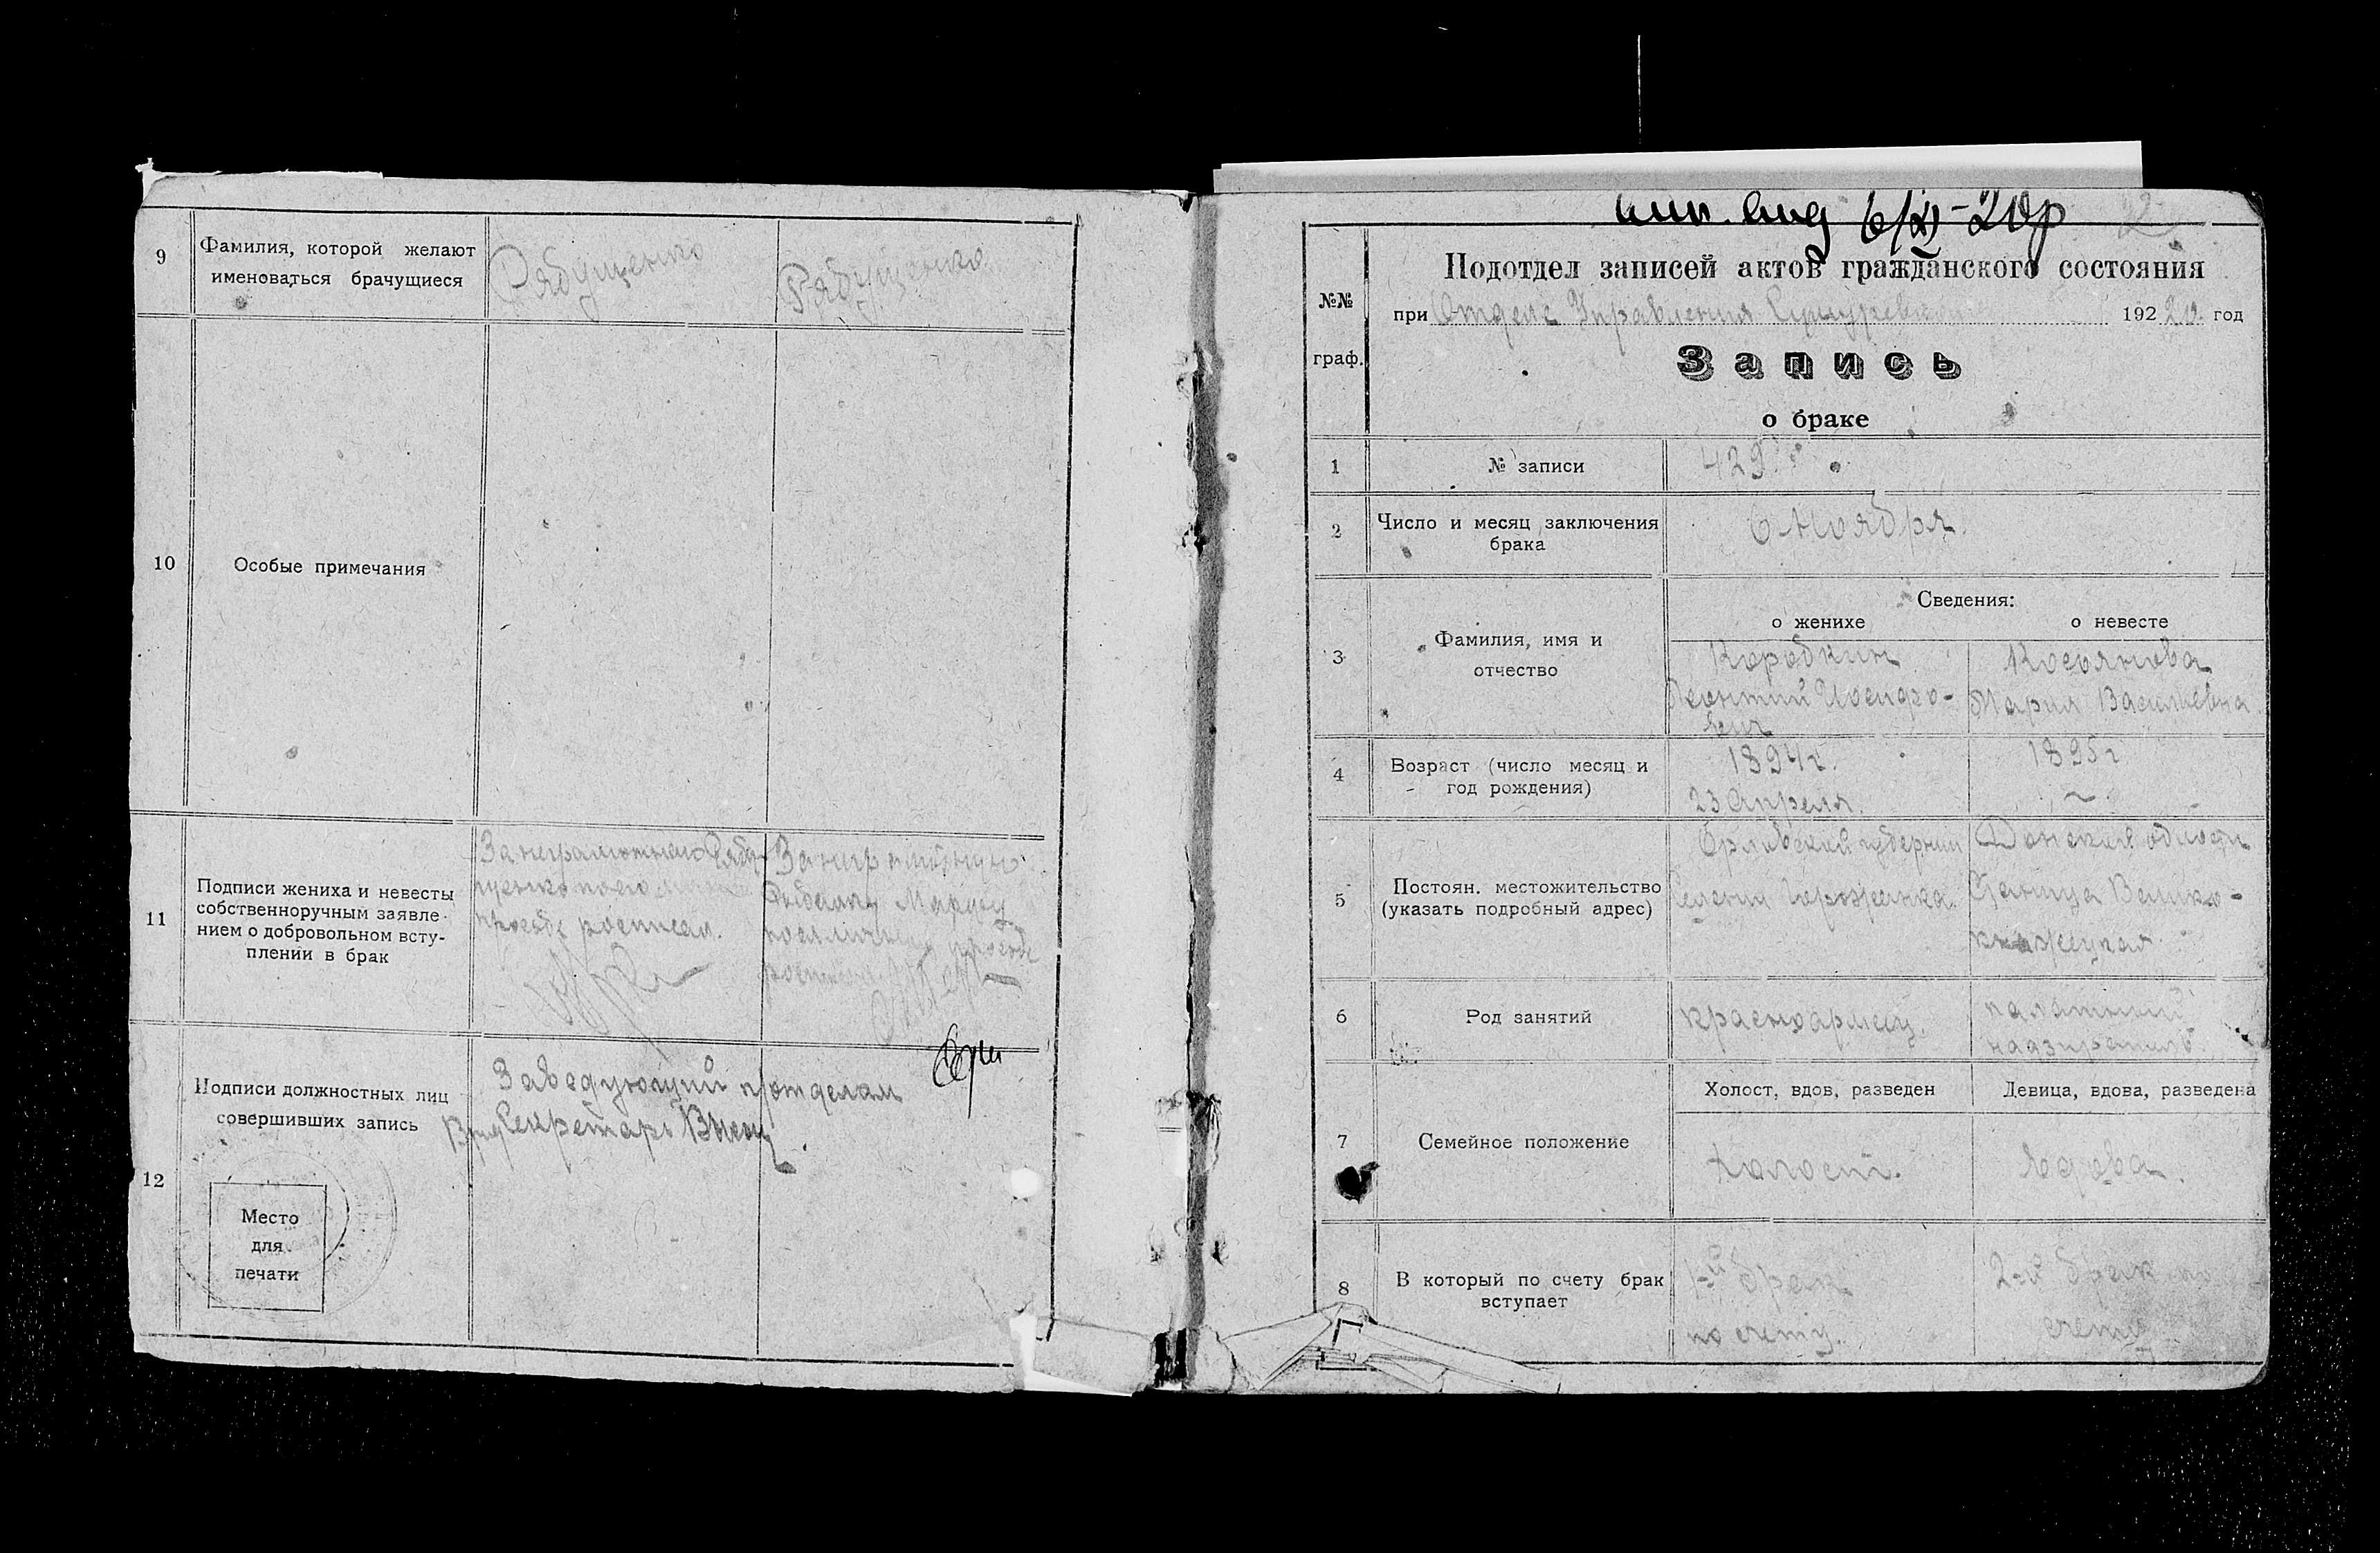 9
Фамилия, которой желают
именоваться брачущиеся
Рябущенко
Рябущенко
10
Особые примечания
11
Подписи жениха и невесты
собственноручным заявле-
нием о добровольном всту-
плении в брак
За неграмотного Рябу-
просьбе росписал.
За неграмотную
Марину
просьбе
12
Подписи должностных лиц
совершивших запись
Заведующий п/отделам
Врид Секретарь
Место
для
печати
6/XI-20р
№№
граф.
Подотдел записей актов гражданского состояния
при Отделе Управления 192 20. год
Запись
о браке
1
№ записи
429.
2
Число и месяц заключения
брака
6 Ноября.
3
Фамилия, имя и
отчество
Сведения:
о женихе
о невесте
Коробкин
Леонтий Иосифо-
вич
Косьянова
Мария Васильевна
4
Возраст (число месяц и
год рождения)
1894г.
23 Апреля.
1895г
5
Постоян. местожительство
(указать подробный адрес)
Орловской губернии
Селения
Донская область
Станица Велико-
княжеская
6
Род занятий
красноармеец.
палатный
надзиратель.
7
Семейное положение
Холост, вдов, разведен
Девица, вдова, разведена
Холост.
Вдова.
8
В который по счету брак
вступает
1-й брак
по счету.
2-й брак по
счету